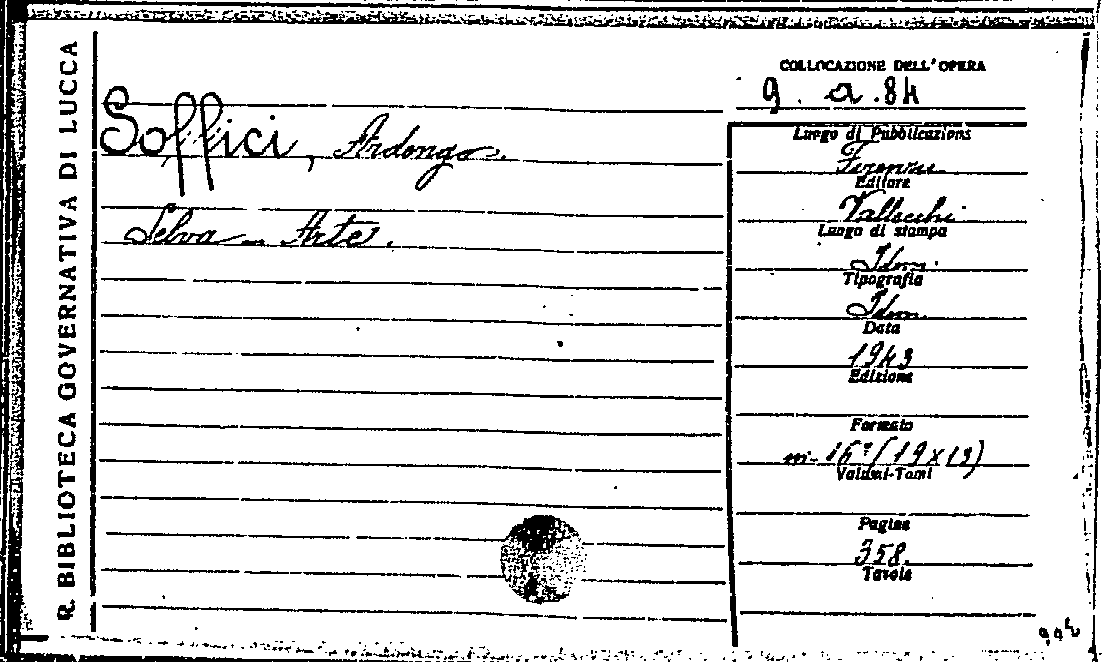 R. BIBLIOTECA GOVERNATIVA DI LUCCA
Soffici, Ardengo.
Selva - Arte.
COLLOCAZIONE DELL'OPERA
9. a. 84
Luogo di Pubblicazions
Firenze
Editore
Vallecchi
Luogo di stampa
Idem.
Tipografia
Idem.
Data
1943
Edizione
Formato
in-16° (19x13)
Volumi-Tomi
Pagine
358.
Tavole